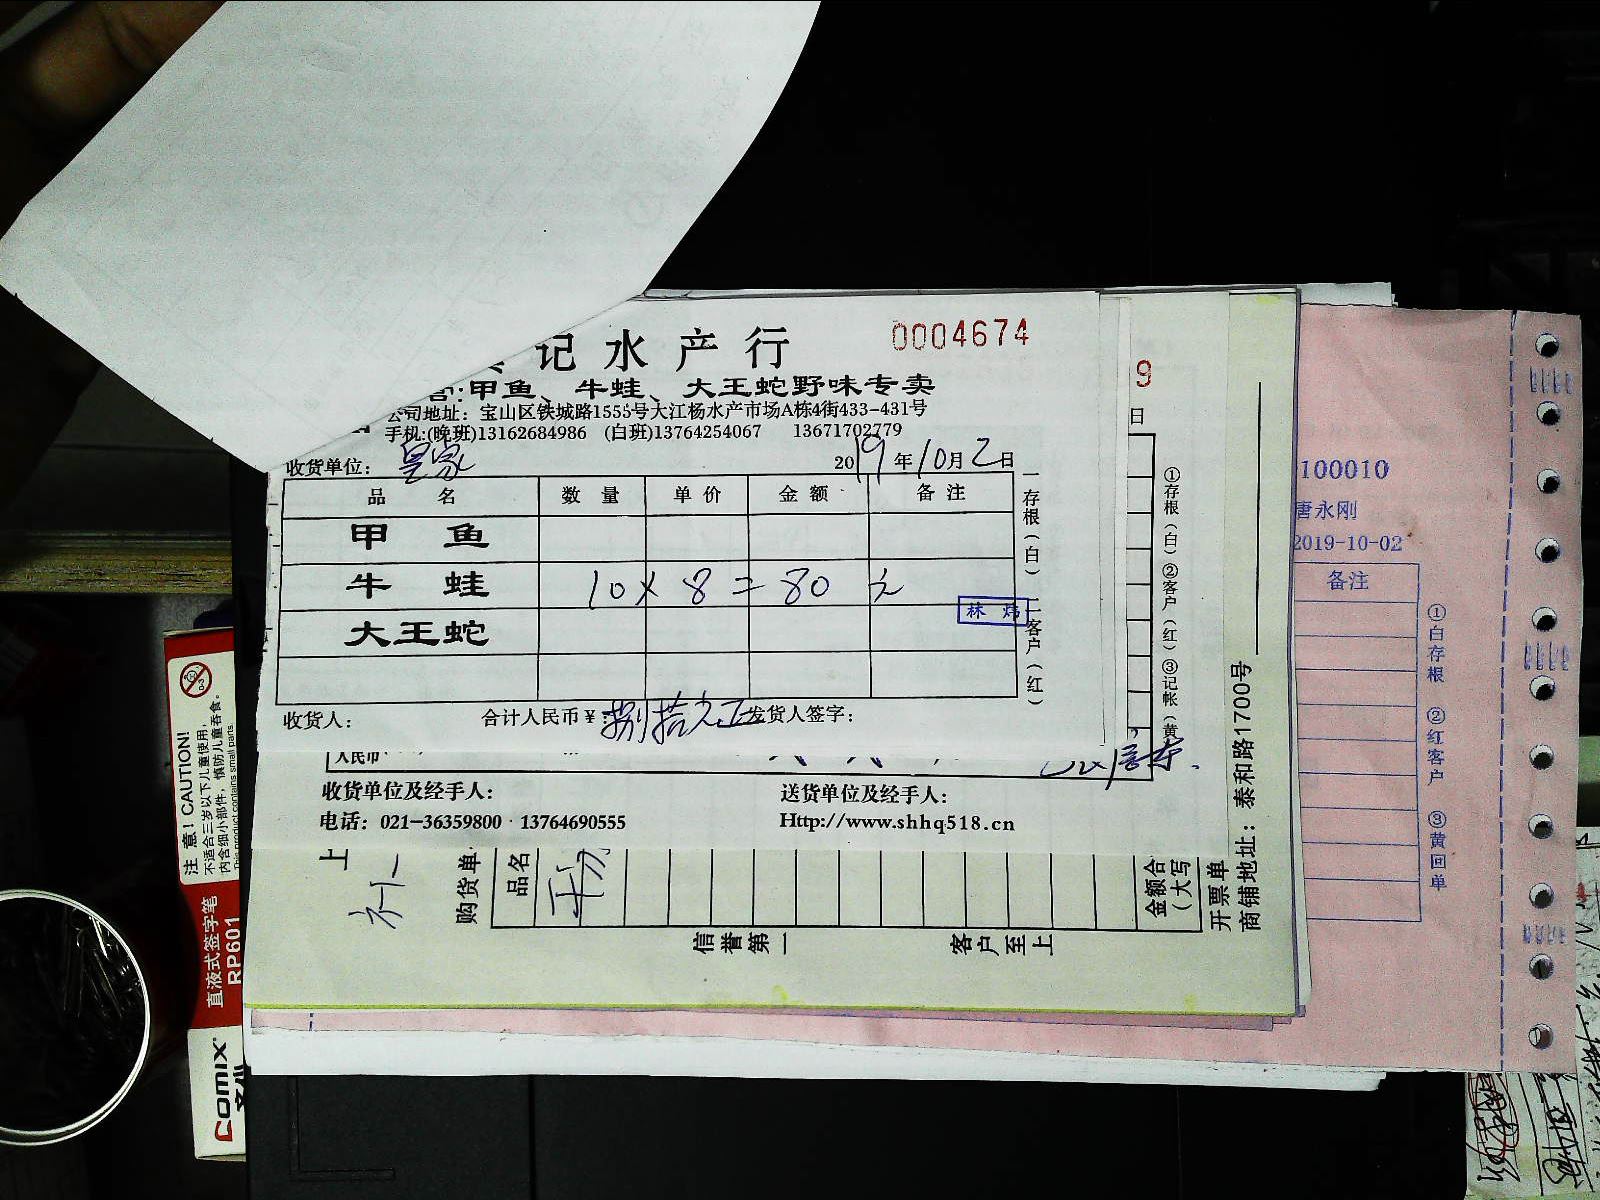 记水产行
0004674
:甲鱼、牛蛙、大王蛇野味专卖
公司地址：宝山区铁城路1555号大江杨水产市场A栋4街433-431号
手机:(晚班)13162684986 (白班)13764254067 13671702779
收货单位：皇家
2019年10月2日
品名 数量 单价 金额 备注
甲鱼
牛蛙 10×8=80元
大王蛇
林炜
收货人： 合计人民币￥:捌拾元正 发货人签字：
一存根(白) 二客户(红)
9
日
①存根(白) ②客户(红) ③记帐(黄
人民币
收货单位及经手人： 送货单位及经手人：
电话：021-36359800 13764690555 Http://www.shhq518.cn
上
购货单
品名
金额合
(大写
开票单
商铺地址：泰和路1700号
信誉第一 客户至上
100010
唐永刚
2019-10-02
备注
①白存根 ②红客户 ③黄回单
注意! CAUTION!
不适合三岁以下儿童使用，
内含细小部件，慎防儿童吞食。
This product contains small parts
0-3
直液式签字笔
RP601
comix